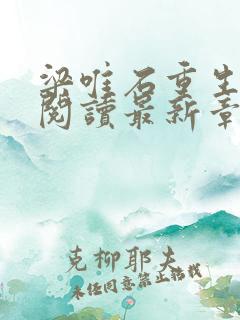 梁唯石重生
閱讀最新章
克柳耶夫
未经同意禁止转载